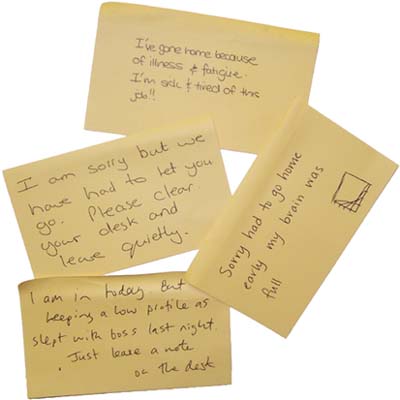 I've gone home because
of illness & fatigue.
I'm sick & tired of this
job!!
I am sorry but we
have had to let you
go. Please clear
your desk and
leave quietly.
Sorry had to go home
early my brain was
full
I am in today But
keeping a low profile as
slept with boss last night.
Just leave a note
on the desk